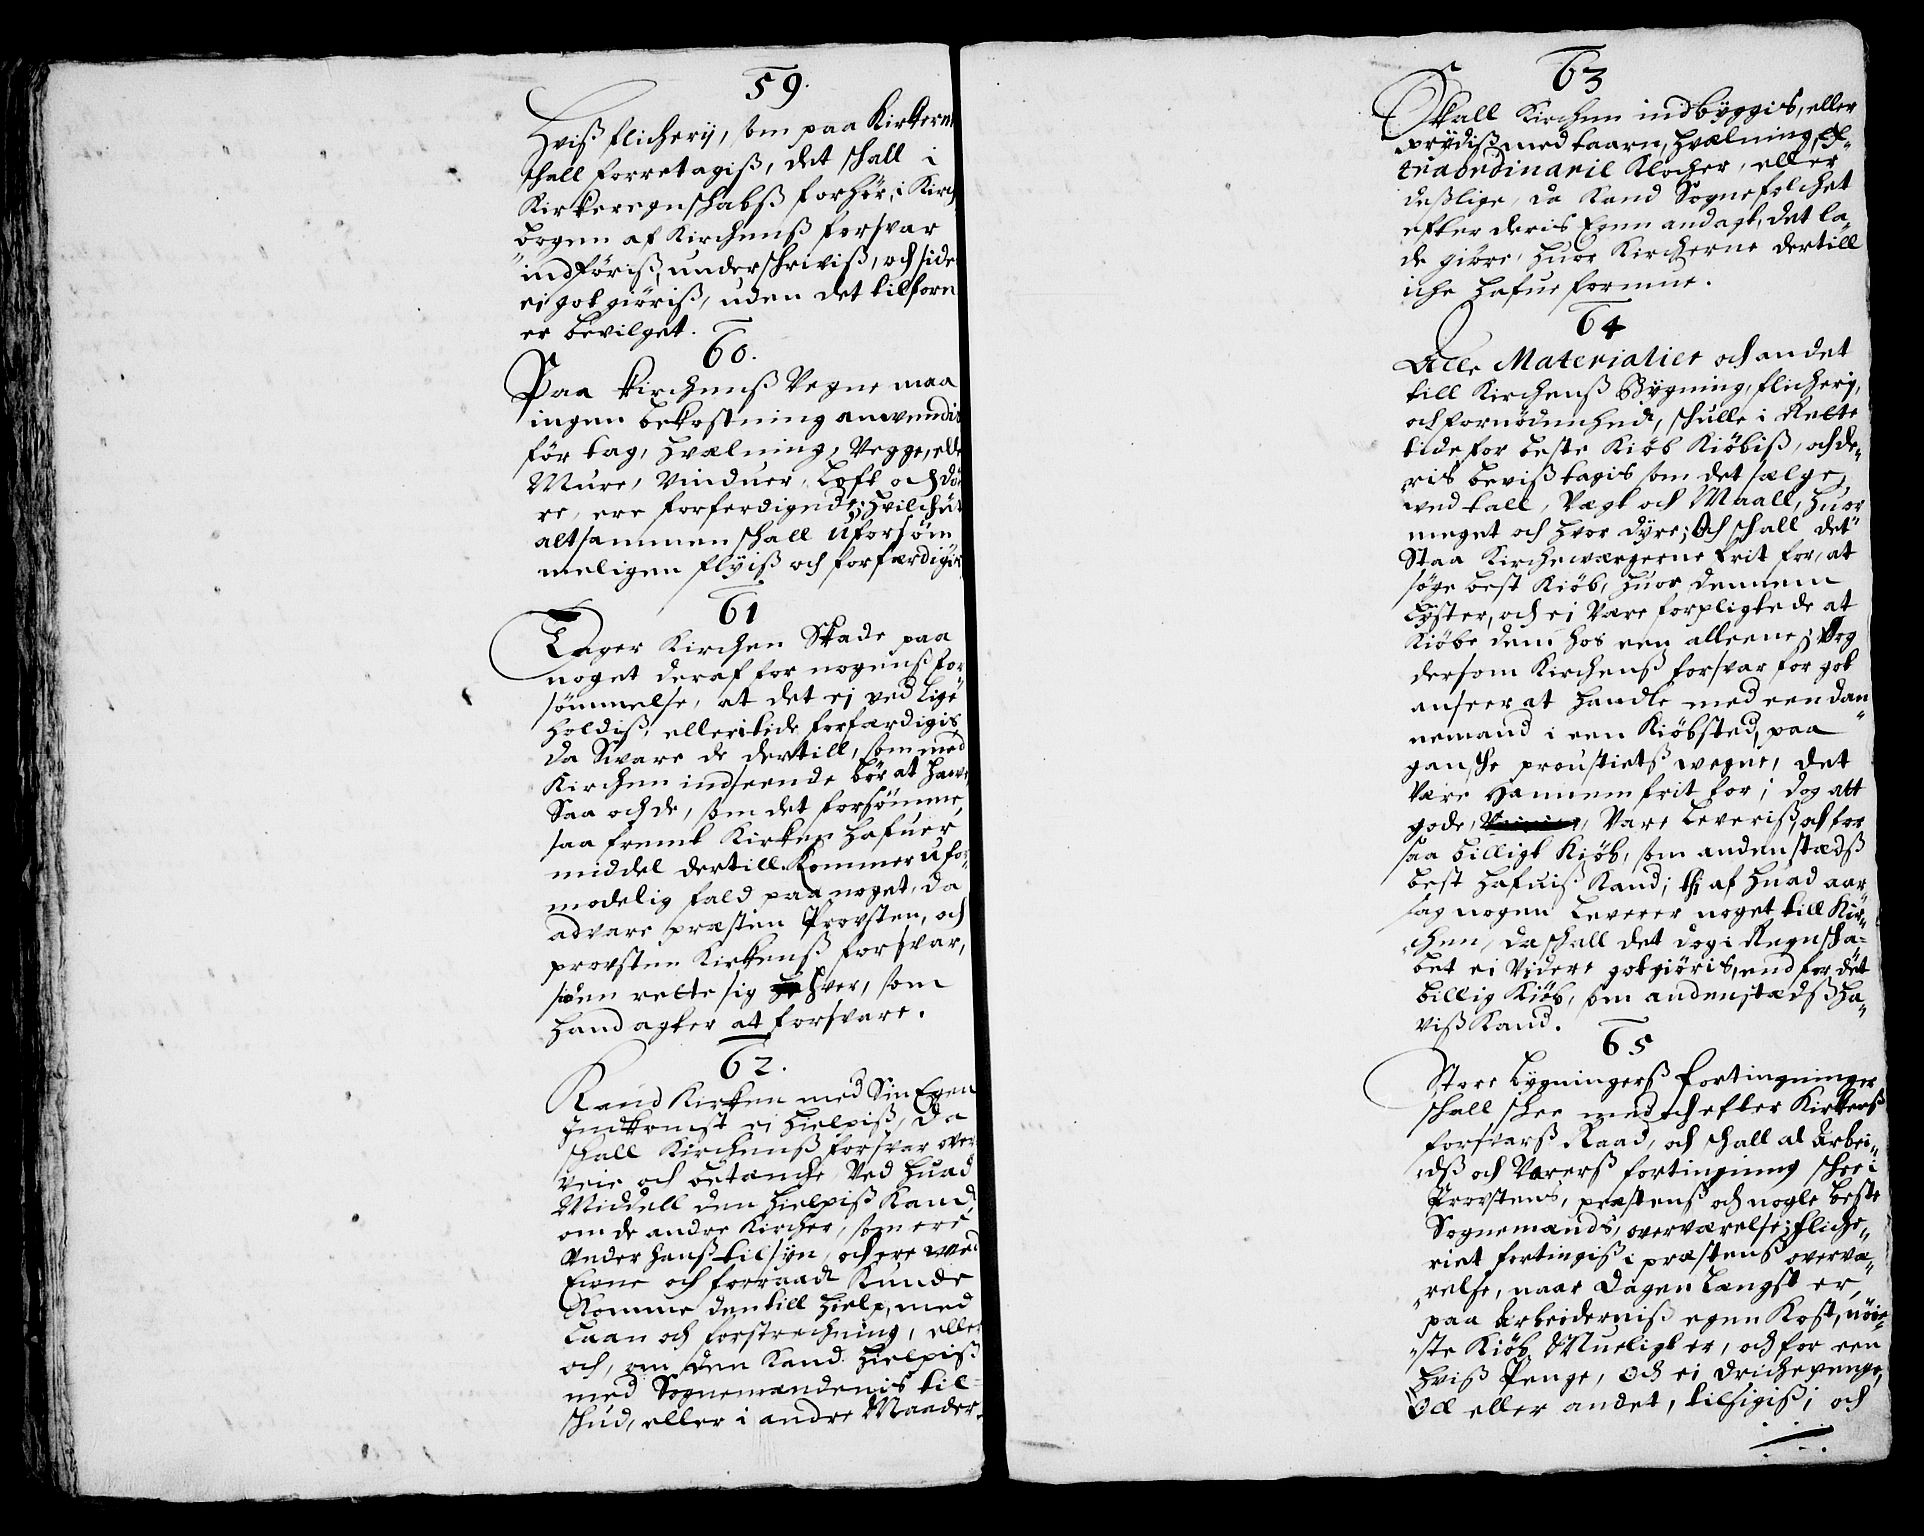 59.
Hviß flicherij, som paa Kirkerne
shall forretagiß, det shall i
Kirkeregnshabß forhør, i Kirch
bogen af Kirchenß forsvar
indføriß, undershriviß, och side
ej got giøriß, uden det tilforn
er bevilget.
60.
Paa Kirchenß Vegne maa
ingen bekostning anvendis
før tag, Hvælning, Vegge, elle
Mure, Vinduer, Loft och Dø
re, ere forferdigede; Hvilchet
altsammen shall Uforsøm
meligen flyiß och forfærdigis
61
Tager Kirchen Skade paa
noget deraf for nogenß for
sømmelse, at det ej ved lige
holdiß, eller i tide forfærdigis,
da Svare de dertill, som med
Kirchen indseende bør at have
Saa och de, som det forsømme,
saa fremt Kirken hafuer
middel dertill. Kommer Ufor
modelig fald paa noget, da
advare præsten Provsten, och
provsten Kirkenß forsvar,
siden rette sig hver, som
hand agter at forsvare.
62.
Kand Kirken med Sin Egen
Indkomst ei hielpiß, da
shall Kirchenß forsvar over
veie och betænche, Ved huad
Middell den hielpiß Kand,
om de andre Kircher, som ere
Under hanß tilsyn, och ere ved
Evne och forraad Kunde
Komme den till hielp, med
Laan och forstrechning, eller
och, om den Kand hielpiß
med Sognemændenis til-
shud, eller i andre Maader.
63
Skall Kirchen indbyggis, eller
prydiß med taarn, hvælning, Ex-
traordinarie Klocher, eller
desslige, da Kand Sognefolchet
efter deris Egen andagt, det la-
de giøre, huor Kircherne dertill
iche hafue formue.
64
Alle Materialier och andet
till Kirchenß Bygning, flicherij,
och fornødenhed, shulle i Rette
tide for beste Kiøb Kiøbiß, och de-
ris beviß tagis som det sælge,
ved tall, Vægt och Maall, huor
meget och hvor dyre; Och shall det
Staa Kircheværgerne frit for, at
søge best Kiøb, huor dennem
Lyster, och ei Være forpligtede at
Kiøbe dem hos een alleene; Og
dersom Kirchenß forsvar for got
anseer at handle med een Dan
nemand i een Kiøbsted, paa
ganshe proustietß vegne, det
Være Hannem frit for; dog att
gode, Vare Leveriß, och for
saa billigt Kiøb, som andenstædß
best hafuiß Kand; thi af huad aar
sag nogen Leverer noget till Kir-
chen, da shall det dog i Regnsha-
bet ei Videre gotgiøris, end for det
billig Kiøb, som andenstædß ha-
viß Kand.
65
Store Bygningerß fortingninger
shall shee med och efter Kirkenß
forsvarß Raad, och shall al Arbei-
dß och Varerß fortingning shee i
Provstens, præstenß och nogle beste
Sognemænds, overværelse; fliche-
riet fortingiß i præstenß overvæ-
relse, naar Dagen Længst er,
paa Arbeiderniß egen Kost, nøie-
ste Kiøb Mueligt er, och for een
hviß Penge, Och ei drichepenge,
Øll eller andet, tilsigiß; och